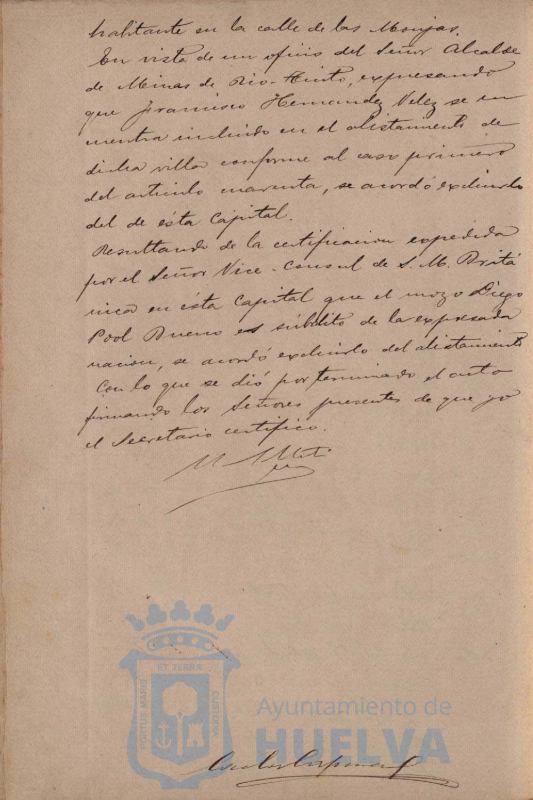 habitante en la calle de las Monjas.
En vista de un oficio del Señor Alcalde
de Minas de Rio-Tinto, expresando
que Francisco Hernandez Velez se en
cuentra incluido en el alistamiento de
dicha villa conforme al caso primero
del articulo cuarenta, se acordó excluirlo
del de ésta Capital.
Resultando de la certificacion expedida
por el Señor Vice-Consul de S. M. Britá
nica en ésta Capital que el mozo Diego
Pool Bueno es súbdito de la expresada
nacion, se acordó excluirlo del alistamiento
Con lo que se dió por terminado el acto
firmando los Señores presentes de que yo
el Secretario certifico.
PORTUS MARIS ET TERRÆ CUSTODIA
Ayuntamiento de
HUELVA